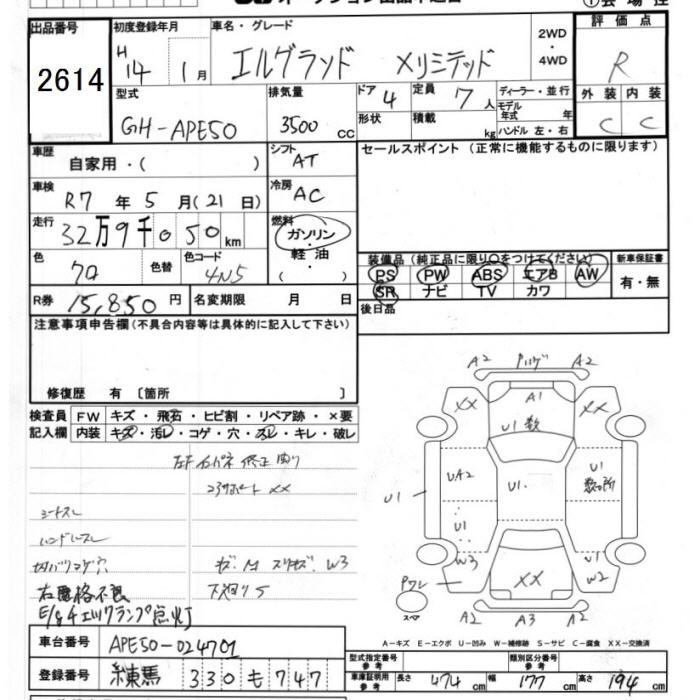 出品番号 初度登録年月 車名・グレード 2WD・4WD 評価点
2614 H14 1月 エルグランド Xリミテッド R
型式 排気量 ドア 4 定員 7人 ディーラー・並行 外装 内装
GH-APE50 3500cc 形状 積載 kg モデル年式 年 ハンドル 左・右 C C
車歴 自家用・( ) シフト AT セールスポイント(正常に機能するものに限ります)
車検 R7年 5月(21日) 冷房 AC
走行 32万9千050km 燃料 ガソリン・軽油・( )
装備品(純正品に限り○をつけてください) 新車保証書
色 クロ 色替 色コード 4N5 PS PW ABS エアB AW 有・無
SR ナビ TV カワ
R券 15,850円 名変期限 月 日 後日品
注意事項申告欄(不具合内容等は具体的に記入して下さい)
修復歴 有 〔箇所 〕
検査員 FW キズ・飛石・ヒビ割・リペア跡・×要
記入欄 内装 キズ・汚レ・コゲ・穴・スレ・キレ・破レ
シートスレ
ハンドルスレ
W3
下廻りS
E/gチェックランプ点灯
A2 A2
XX A1 XX
U1数
U1 UA2 U1. U1
U1
W3 XX U1 W2
スペア
A2 A3 A2
A-キズ E-エクボ U-凹み W-補修跡 S-サビ C-腐食 XX-交換済
車台番号 APE50-024701
型式指定番号 類別区分番号
登録番号 練馬 330 も 747
車庫証明用参考 長さ 474cm 幅 177cm 高さ 194cm